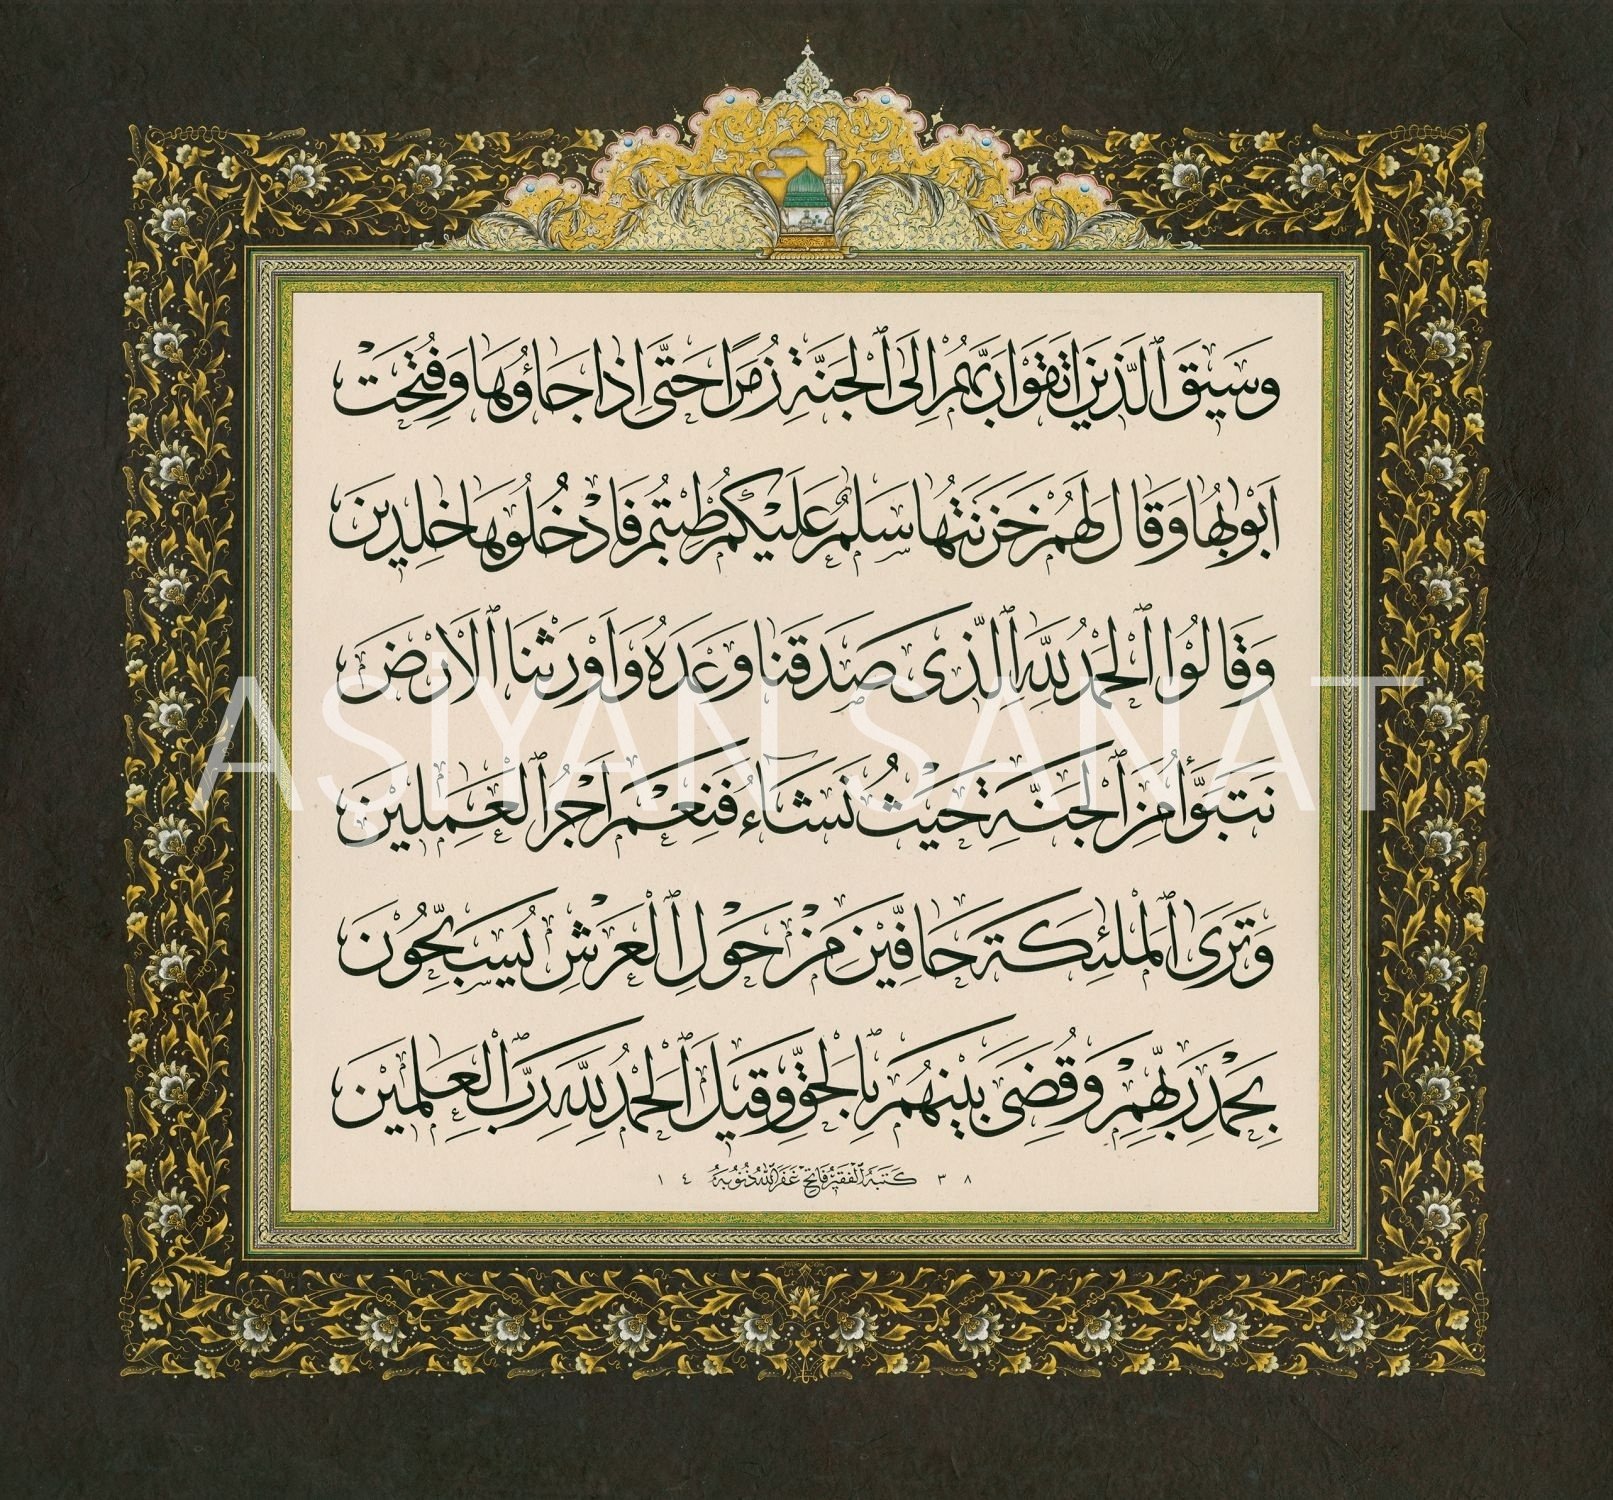 وَسِيقَ ٱلَّذِينَ اتَّقَوْا رَبَّهُمْ اِلَى ٱلْجَنَّةِ زُمَرًا حَتَّى اِذَا جَاؤُهَا وَفُتِحَتْ
اَبْوَابُهَا وَقَالَ لَهُمْ خَزَنَتُهَا سَلٰمٌ عَلَيْكُمْ طِبْتُمْ فَادْخُلُوهَا خٰلِدِينَ
وَقَالُوا ٱلْحَمْدُ لِلّٰهِ ٱلَّذِى صَدَقَنَا وَعْدَهُ وَاَوْرَثَنَا ٱلْاَرْضَ
نَتَبَوَّأُ مِنَ ٱلْجَنَّةِ حَيْثُ نَشَآءُ فَنِعْمَ اَجْرُ ٱلْعَامِلِينَ
وَتَرَى ٱلْمَلٰئِكَةَ حَافِّينَ مِنْ حَوْلِ ٱلْعَرْشِ يُسَبِّحُونَ
بِحَمْدِ رَبِّهِمْ وَقُضِىَ بَيْنَهُمْ بِٱلْحَقِّ وَقِيلَ ٱلْحَمْدُ لِلّٰهِ رَبِّ ٱلْعَالَمِينَ
٣٨ كَتَبَهُ ٱلْفَقِيرُ فَاتِح غَفَرَ ٱللّٰهُ ذُنُوبَهُ ١٤
ASİYAN SANAT